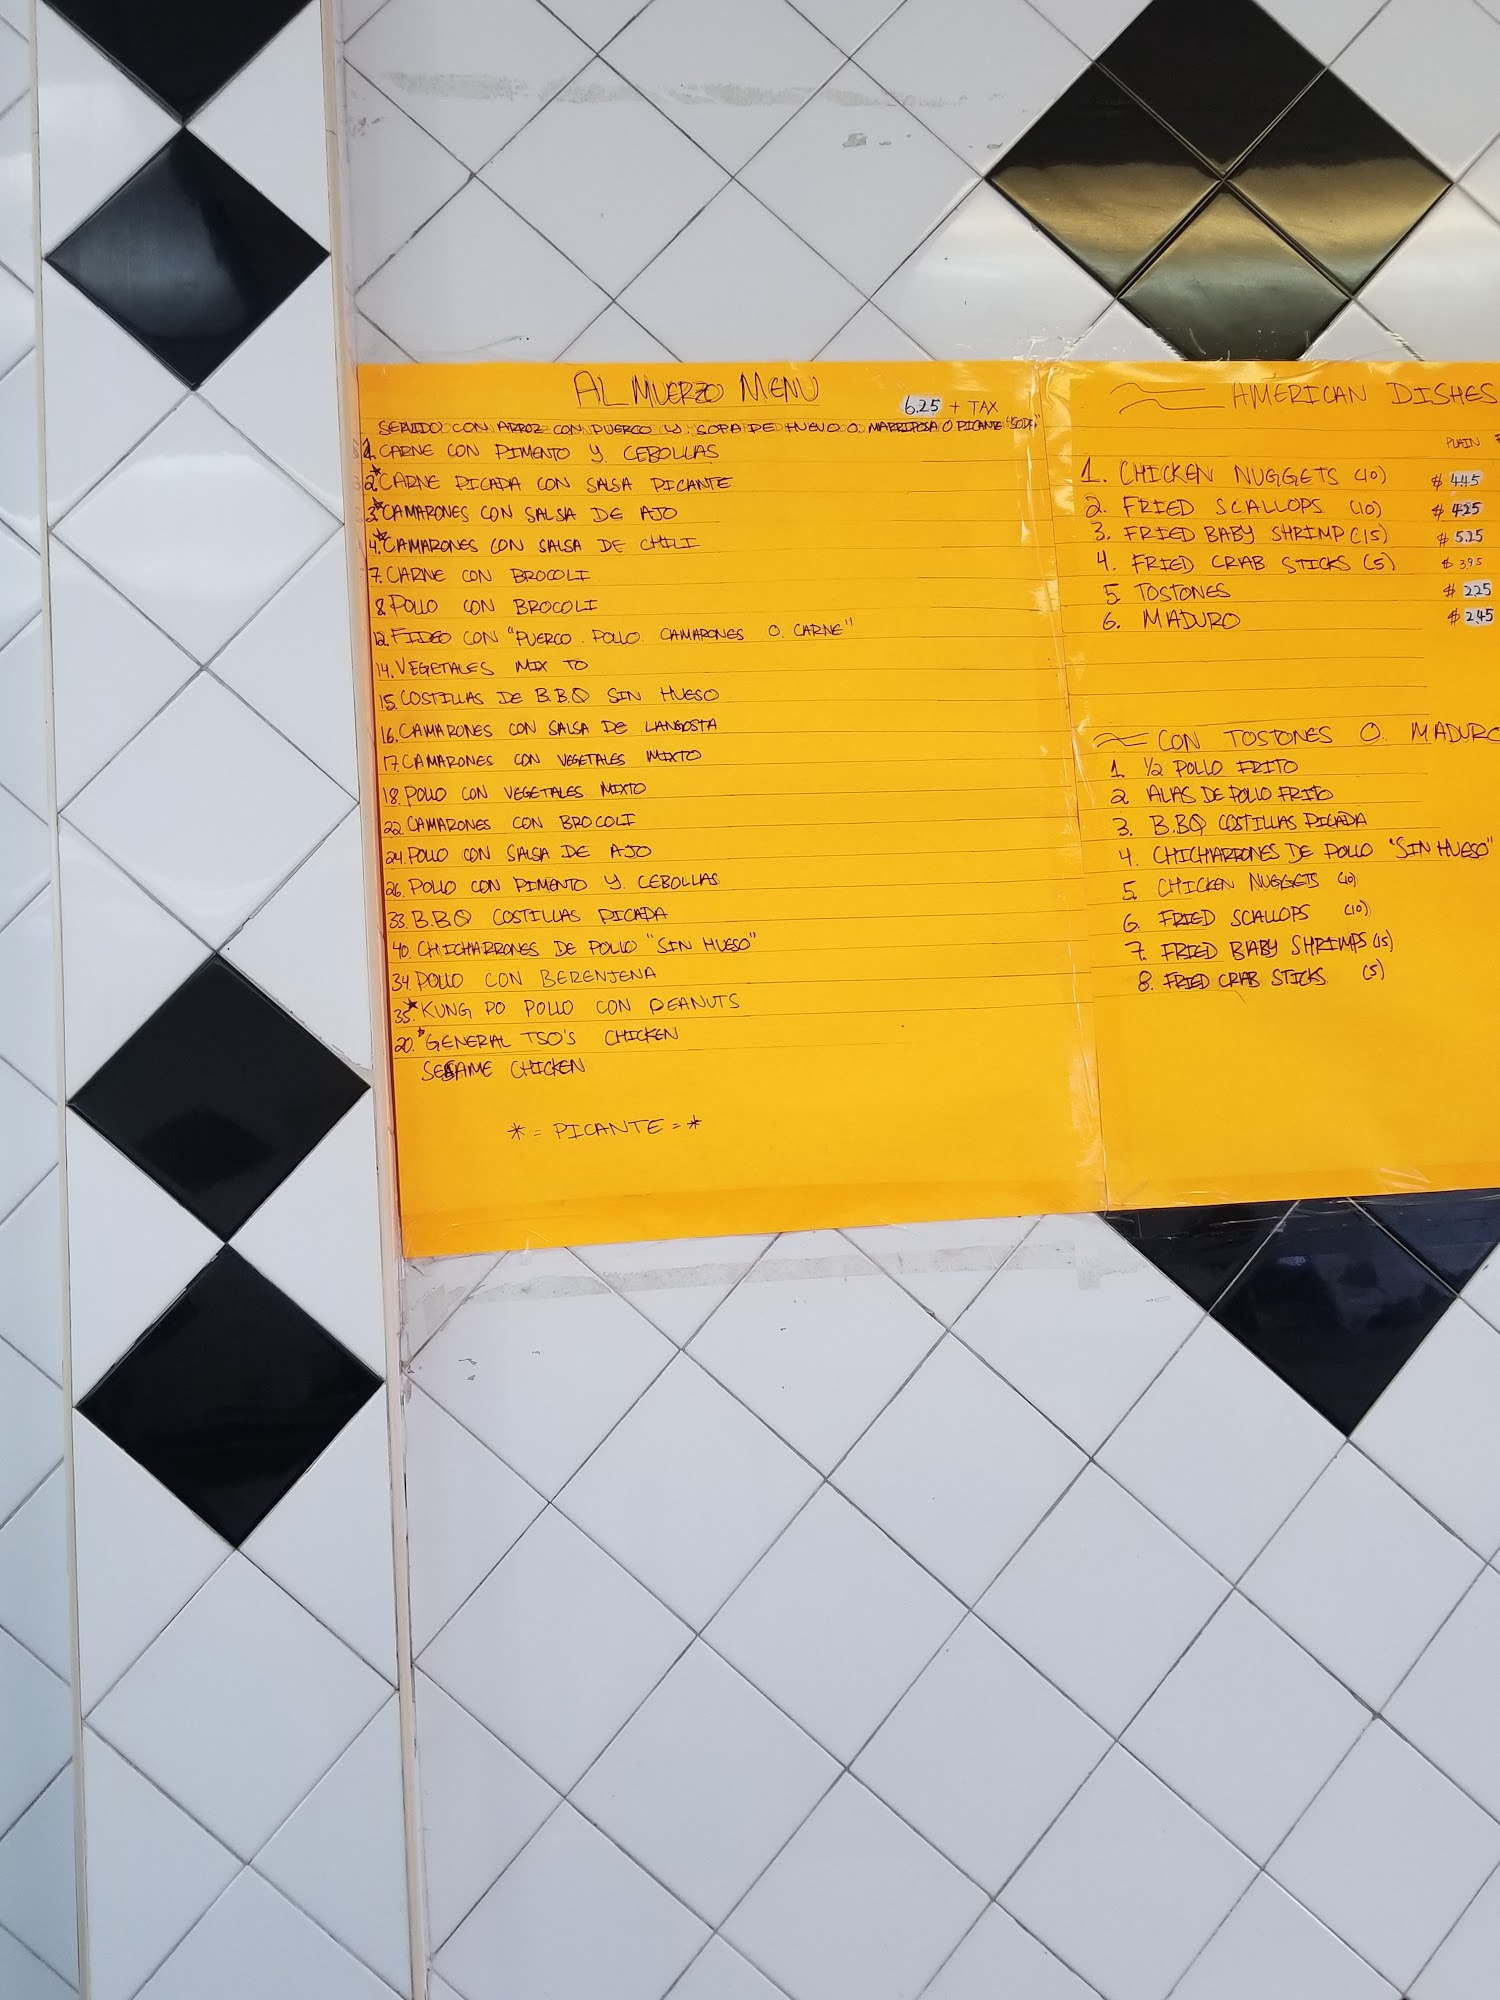 ALMUERZO MENU
6.25 + TAX
SERVIDO CON ARROZ CON PUERCO Y. SOPA DE HUEVO O. MARIPOSA O PICANTE "SODA"
1. CARNE CON PIMENTO Y. CEBOLLAS
2.* CARNE PICADA CON SALSA PICANTE
3.* CAMARONES CON SALSA DE AJO
4.* CAMARONES CON SALSA DE CHILI
7. CARNE CON BROCOLI
8. POLLO CON BROCOLI
12. FIDEO CON "PUERCO. POLLO. CAMARONES O. CARNE"
14. VEGETALES MIX TO
15. COSTILLAS DE B.B.Q SIN HUESO
16. CAMARONES CON SALSA DE LANGOSTA
17. CAMARONES CON VEGETALES MIXTO
18. POLLO CON VEGETALES MIXTO
22. CAMARONES CON BROCOLI
24. POLLO CON SALSA DE AJO
26. POLLO CON PIMENTO Y. CEBOLLAS
33. B.B.Q COSTILLAS PICADA
40. CHICHARRONES DE POLLO "SIN HUESO"
34. POLLO CON BERENJENA
35.* KUNG PO POLLO CON PEANUTS
20.* GENERAL TSO'S CHICKEN
SESAME CHICKEN
* = PICANTE = *
AMERICAN DISHES
PLAIN
1. CHICKEN NUGGETS (10) $ 4.45
2. FRIED SCALLOPS (10) $ 4.25
3. FRIED BABY SHRIMP (15) $ 5.25
4. FRIED CRAB STICKS (5) $ 3.95
5. TOSTONES $ 2.25
6. MADURO $ 2.45
CON TOSTONES O. MADURO
1. 1/2 POLLO FRITO
2. ALAS DE POLLO FRITO
3. B.BQ COSTILLAS PICADA
4. CHICHARRONES DE POLLO "SIN HUESO"
5. CHICKEN NUGGETS (10)
6. FRIED SCALLOPS (10)
7. FRIED BABY SHRIMPS (15)
8. FRIED CRAB STICKS (5)